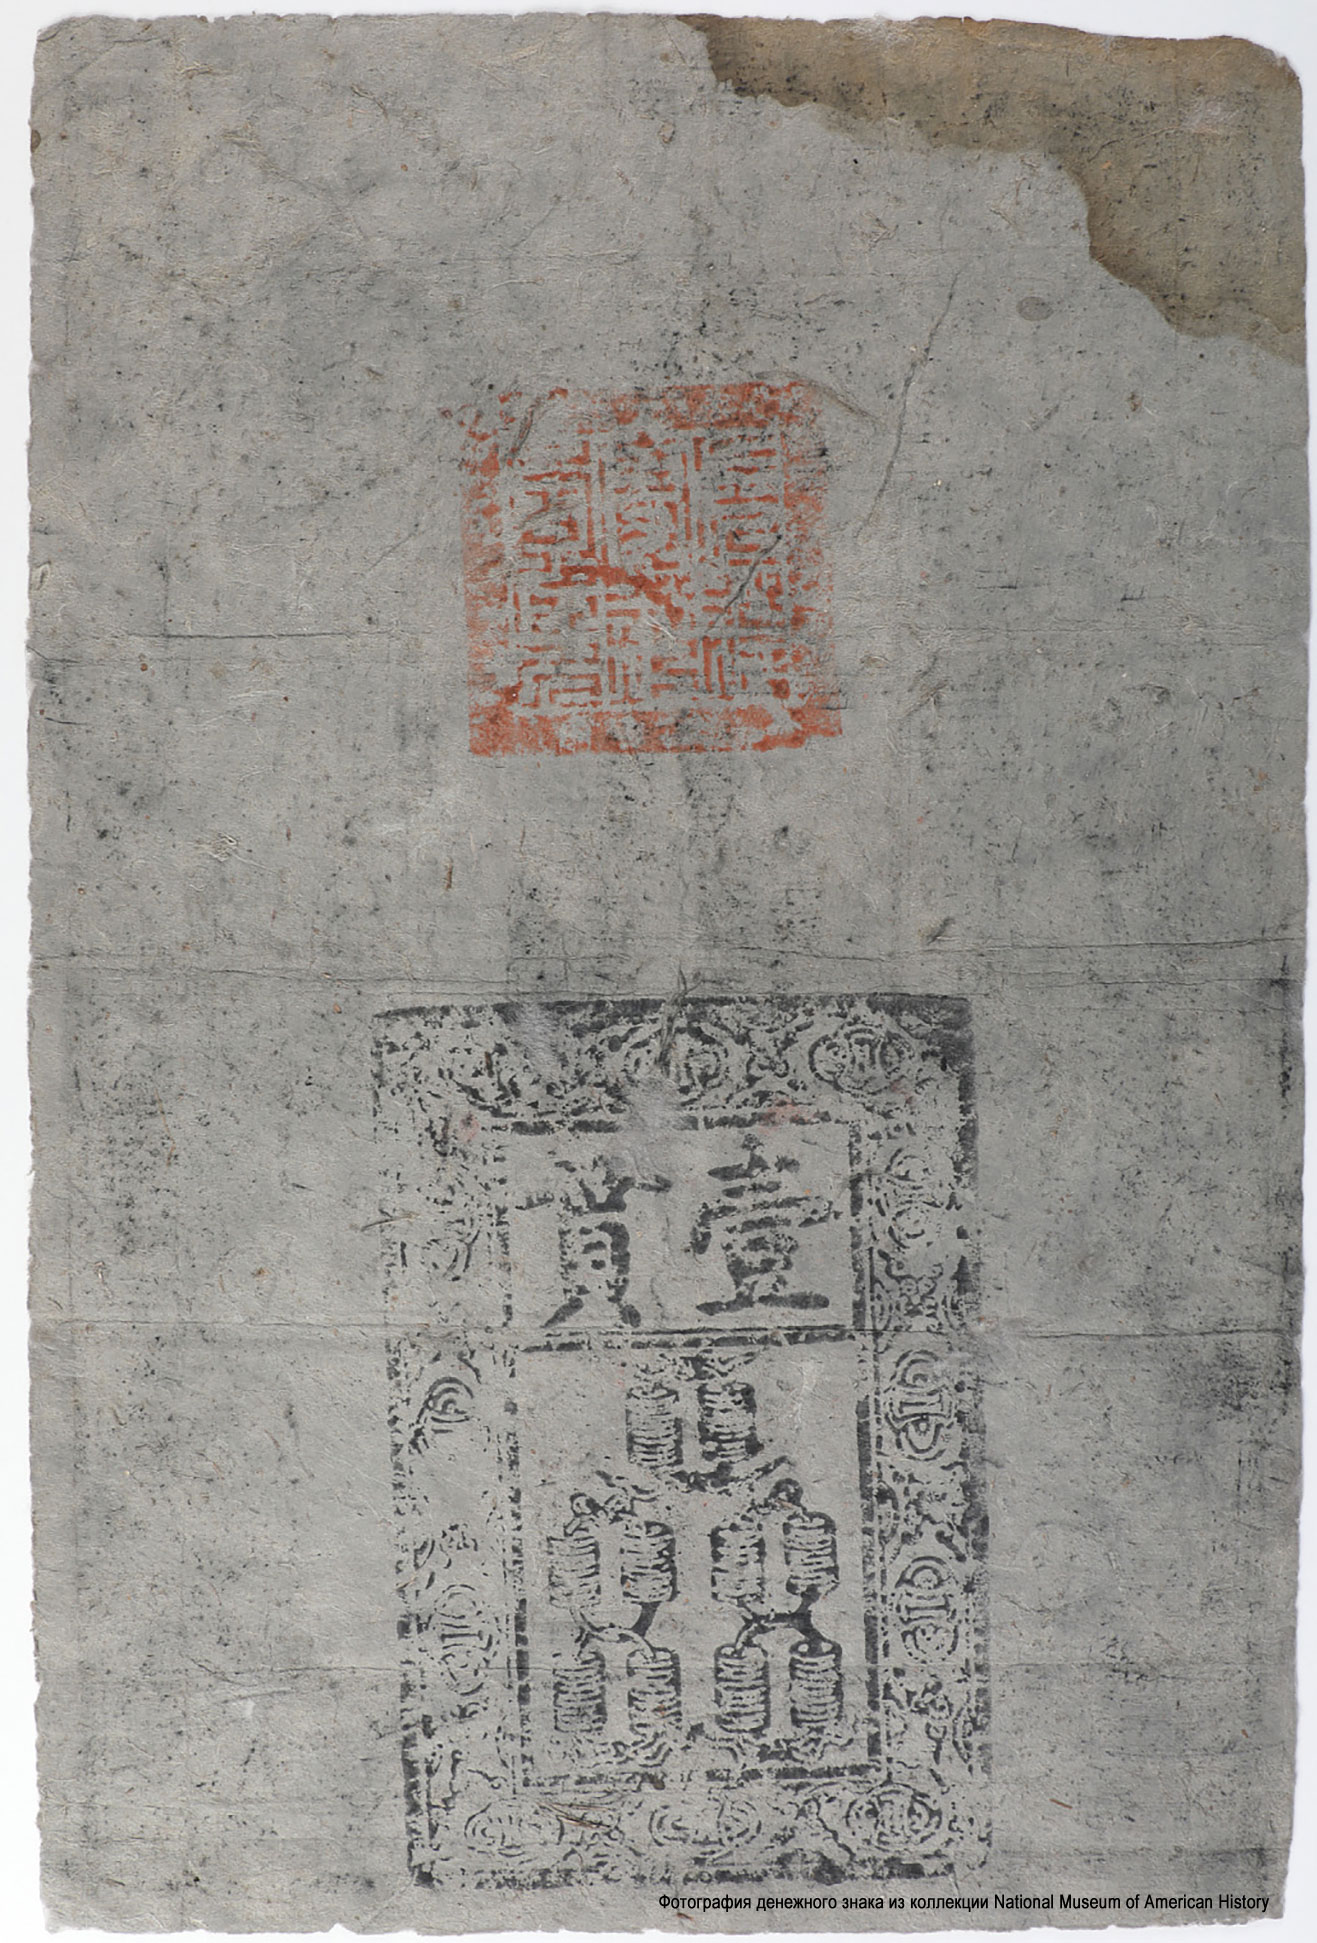 壹貫
Фотография денежного знака из коллекции National Museum of American History